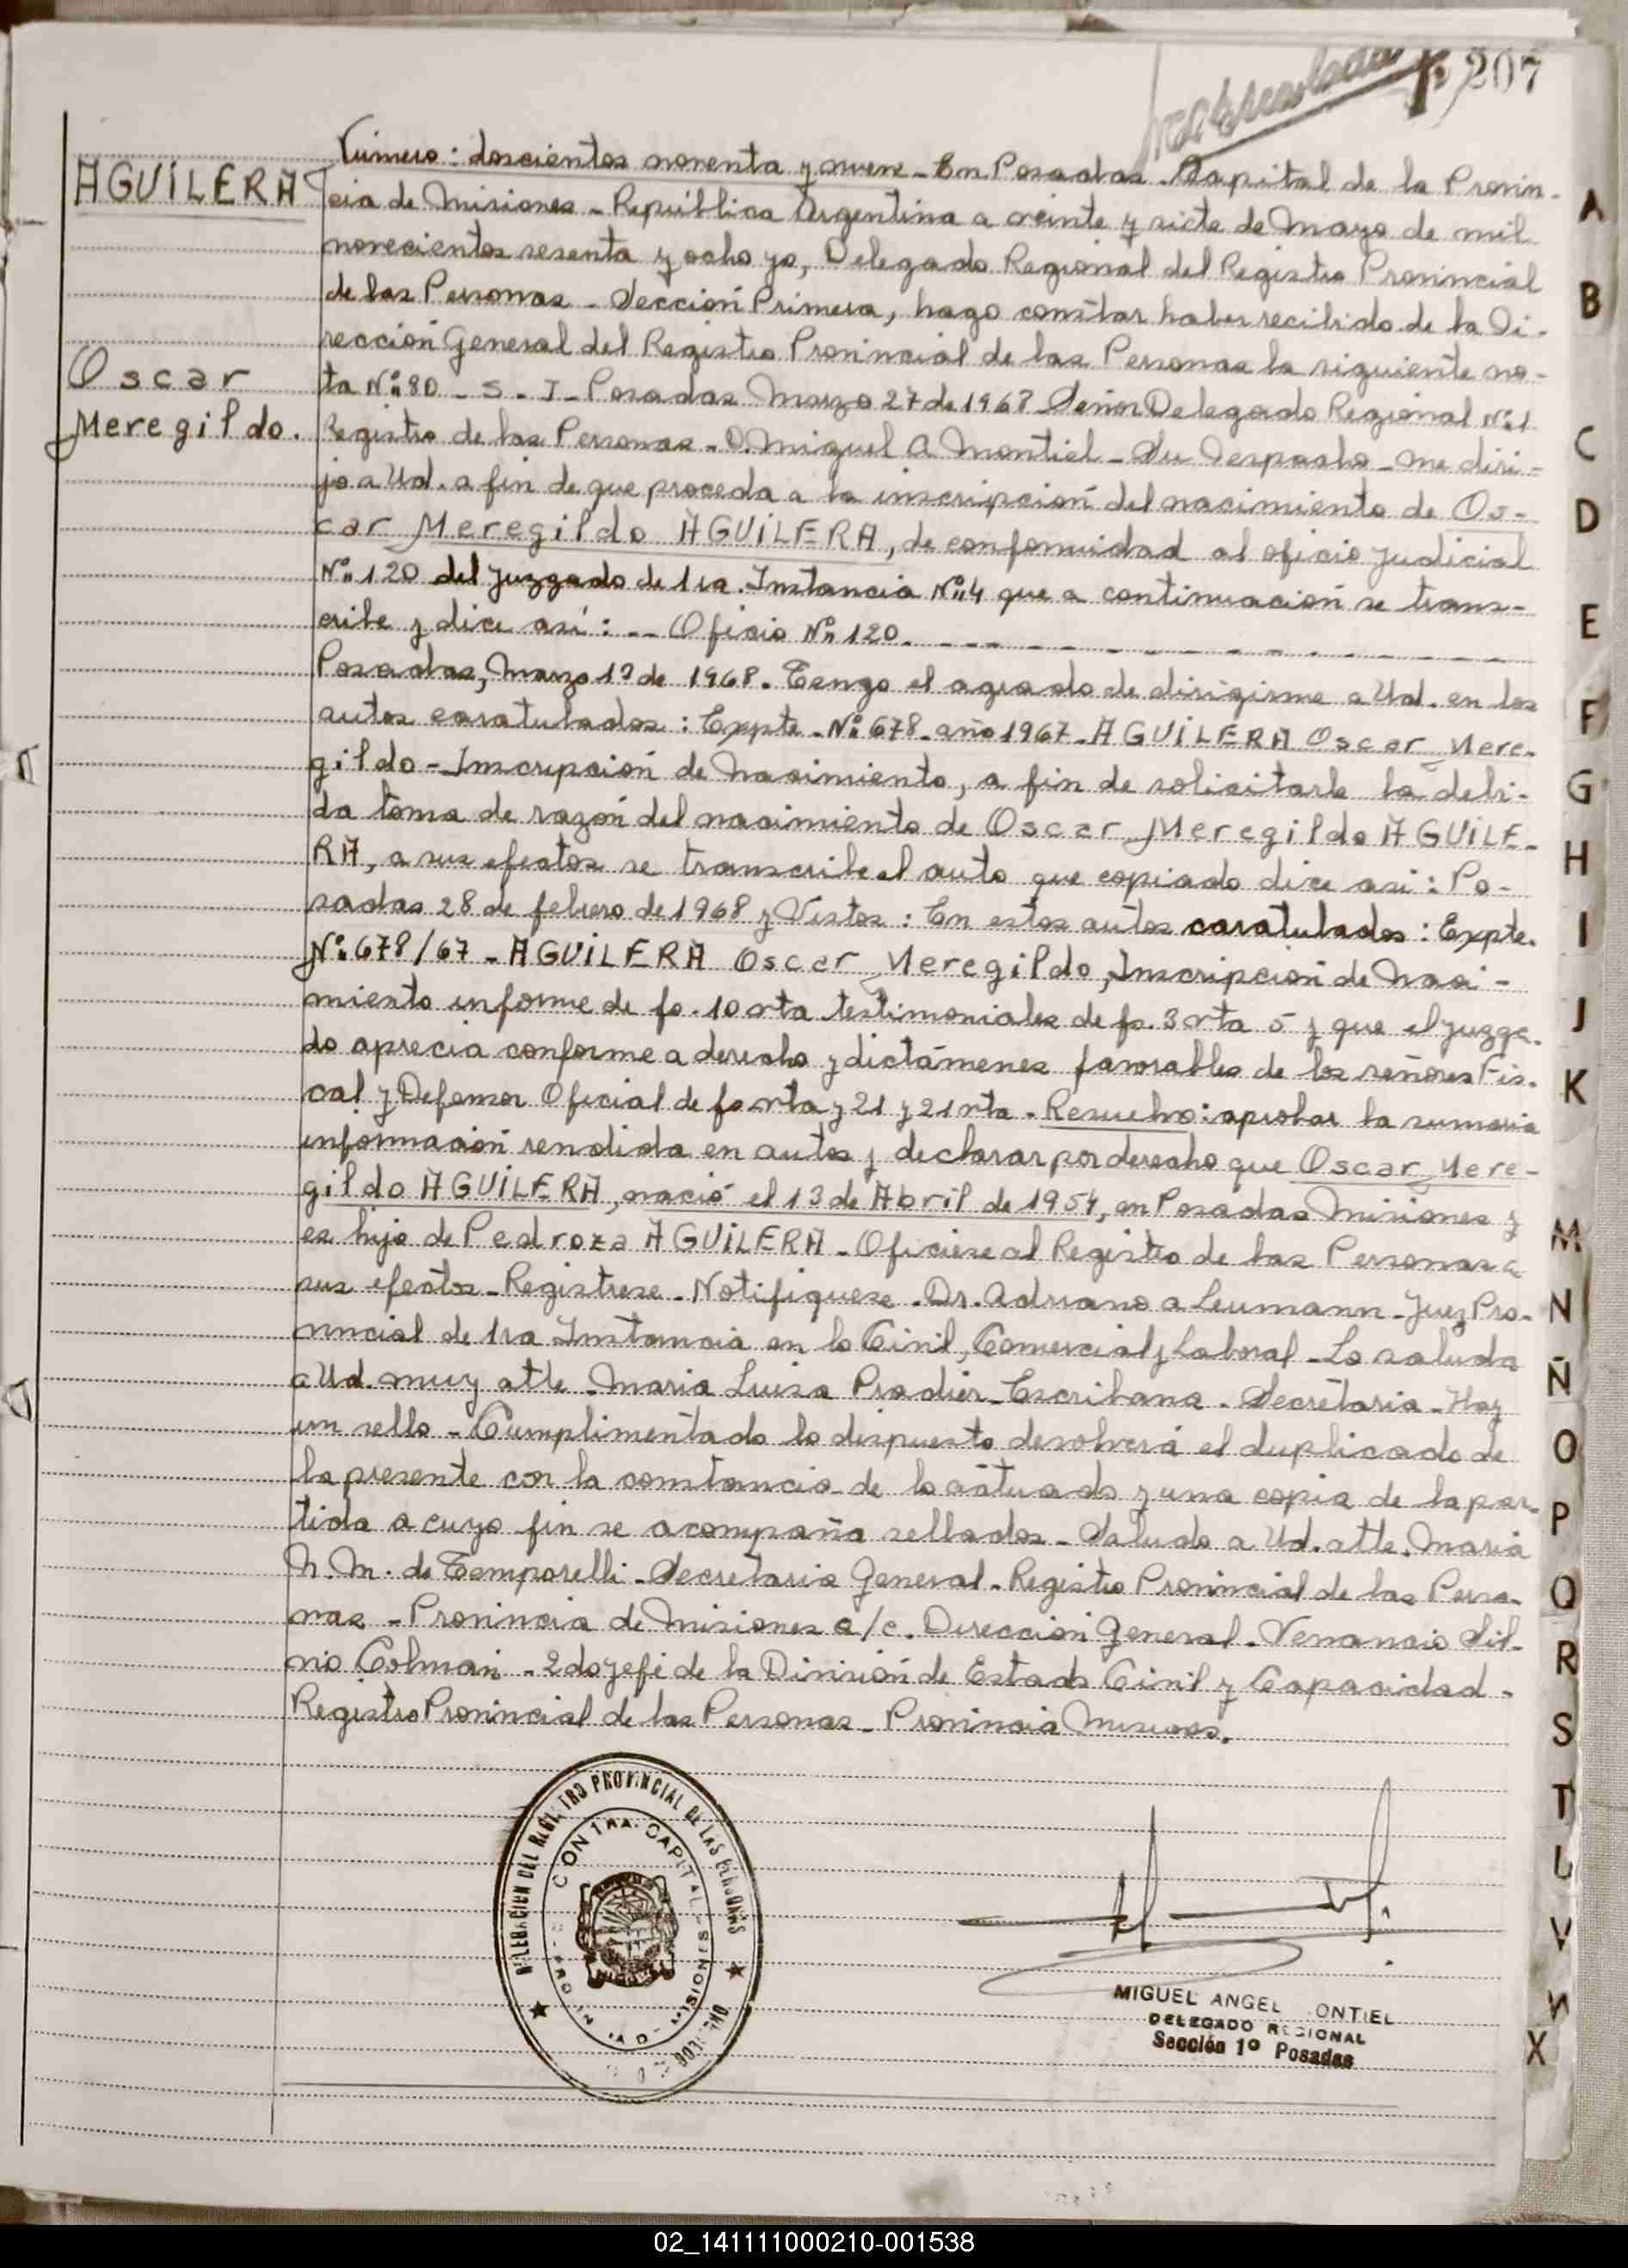 207
AGUILERA
Oscar
Meregildo.
Número: doscientos noventa y nueve - En Posadas - Capital de la Provin-
cia de Misiones - República Argentina a veinte y siete de Mayo de mil
novecientos sesenta y ocho yo, Delegado Regional del Registro Provincial
de las Personas - Sección Primera, hago constar haber recibido de la Di-
rección General del Registro Provincial de las Personas la siguiente no-
ta Nº 80 - S. I - Posadas Marzo 27 de 1968 Señor Delegado Regional Nº 1
Registro de las Personas - D. Miguel A Montiel - Su Despacho - Me diri-
jo a Ud. a fin de que proceda a la inscripción del nacimiento de Os-
car Meregildo AGUILERA, de conformidad al oficio judicial
Nº 120 del Juzgado de 1ra. Instancia Nº 4 que a continuación se trans-
cribe y dice así: -- Oficio Nº 120.
Posadas, Marzo 1º de 1968. Tengo el agrado de dirigirme a Ud. en los
autos caratulados: Expte. Nº 678 - año 1967 - AGUILERA Oscar Mere-
gildo - Inscripción de Nacimiento, a fin de solicitarle la debi-
da toma de razón del nacimiento de Oscar Meregildo AGUILE-
RA, a sus efectos se transcribe el auto que copiado dice asi: Po-
sadas 28 de febrero de 1968 y Vistos: En estos autos caratulados: Expte.
Nº 678/67 - AGUILERA Oscar Meregildo, Inscripción de Naci-
miento informe de fs. 10 vta testimoniales de fs. 3 vta 5 y que el juzga-
do aprecia conforme a derecho y dictámenes favorables de los señores Fis-
cal y Defensor Oficial de fs vta y 21 y 21 vta. Resuelvo: aprobar la sumaria
información rendida en autos y declarar por derecho que Oscar Mere-
gildo AGUILERA, nació el 13 de Abril de 1954, en Posadas Misiones y
es hijo de Pedroza AGUILERA - Ofíciese al Registro de las Personas a
sus efectos - Registrese - Notifiquese - Dr. Adriano A Leumann - Juez Pro-
vincial de 1ra Instancia en lo Civil, Comercial y Laboral - Lo saluda
a Ud. muy atte - Maria Luisa Pradier - Escribana - Secretaria - Hay
un sello - Cumplimentado lo dispuesto devolverá el duplicado de
la presente con la constancia de lo actuado y una copia de la par-
tida a cuyo fin se acompaña sellados - Saludo a Ud. atte. Maria
N. M. de Temporelli - Secretaria General - Registro Provincial de las Perso-
nas - Provincia de Misiones a/c. Dirección General - Venancio Sil-
vio Colman - 2do jefe de la División de Estado Civil y Capacidad -
Registro Provincial de las Personas - Provincia Misiones.
DELEGACION DEL REGISTRO PROVINCIAL DE LAS PERSONAS
MIGUEL ANGEL ONTIEL
DELEGADO REGIONAL
Sección 1º Posadas
A
B
C
D
E
F
G
H
I
J
K
M
N
Ñ
O
P
Q
R
S
T
U
V
W
X
02_141111000210-001538